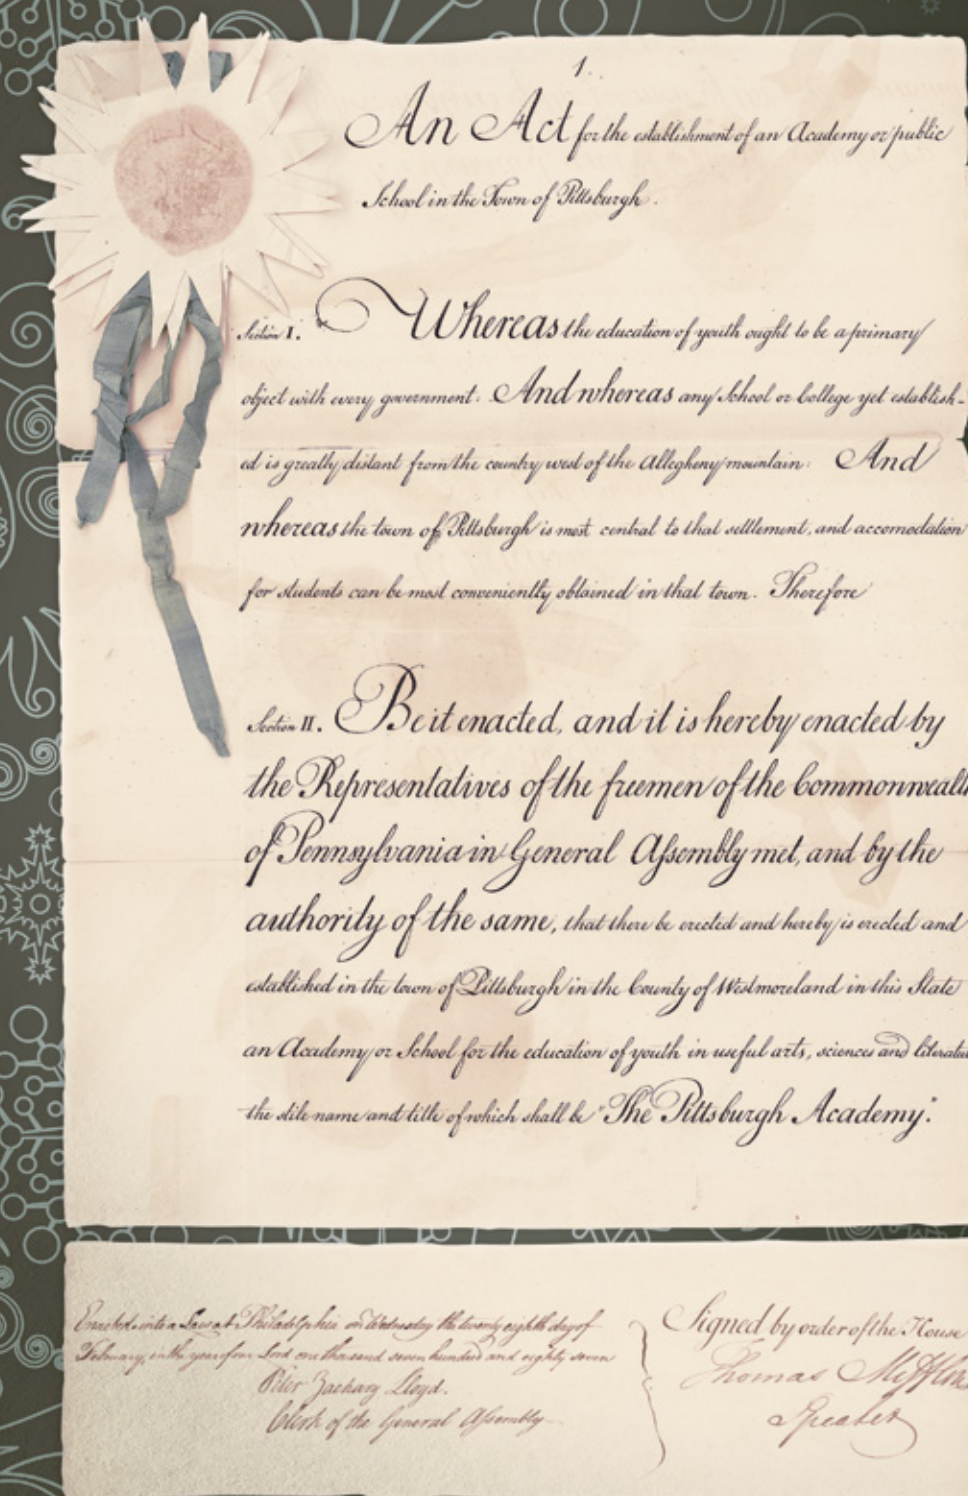 1.
An Act for the establishment of an Academy or public
School in the Town of Pittsburgh.
Section I. Whereas the education of youth ought to be a primary
object with every government. And whereas any School or College yet establish-
ed is greatly distant from the country west of the Allegheny mountain: And
whereas the town of Pittsburgh is most central to that settlement, and accomodation
for students can be most conveniently obtained in that town. Therefore
Section II. Be it enacted, and it is hereby enacted by
the Representatives of the freemen of the Commonwealth
of Pennsylvania in General Assembly met, and by the
authority of the same, that there be erected and hereby is erected and
established in the town of Pittsburgh in the County of Westmoreland in this State
an Academy or School for the education of youth in useful arts, sciences and literatu
the stile name and title of which shall be "The Pittsburgh Academy".
Enacted into a Law at Philadelphia on Wednesday the twenty eighth day of
February, in the year of our Lord one thousand seven hundred and eighty seven
Peter Zachary Lloyd.
Clerk of the General Assembly
Signed by order of the House
Thomas Mifflin
Speaker